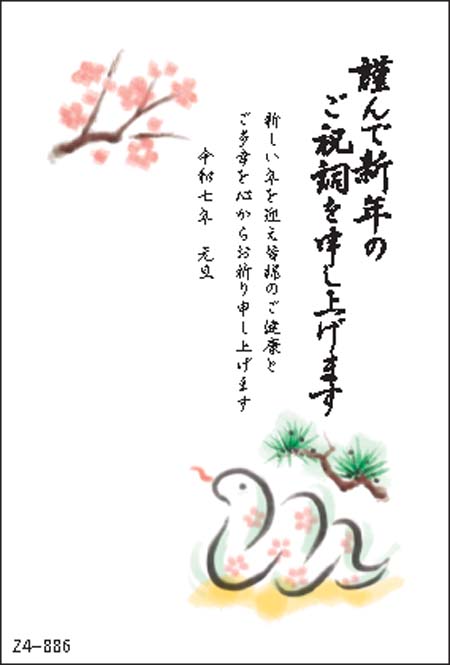 謹んで新年の
ご祝詞を申し上げます
新しい年を迎え皆様のご健康と
ご多幸を心からお祈り申し上げます
令和七年　元旦
Z4-886